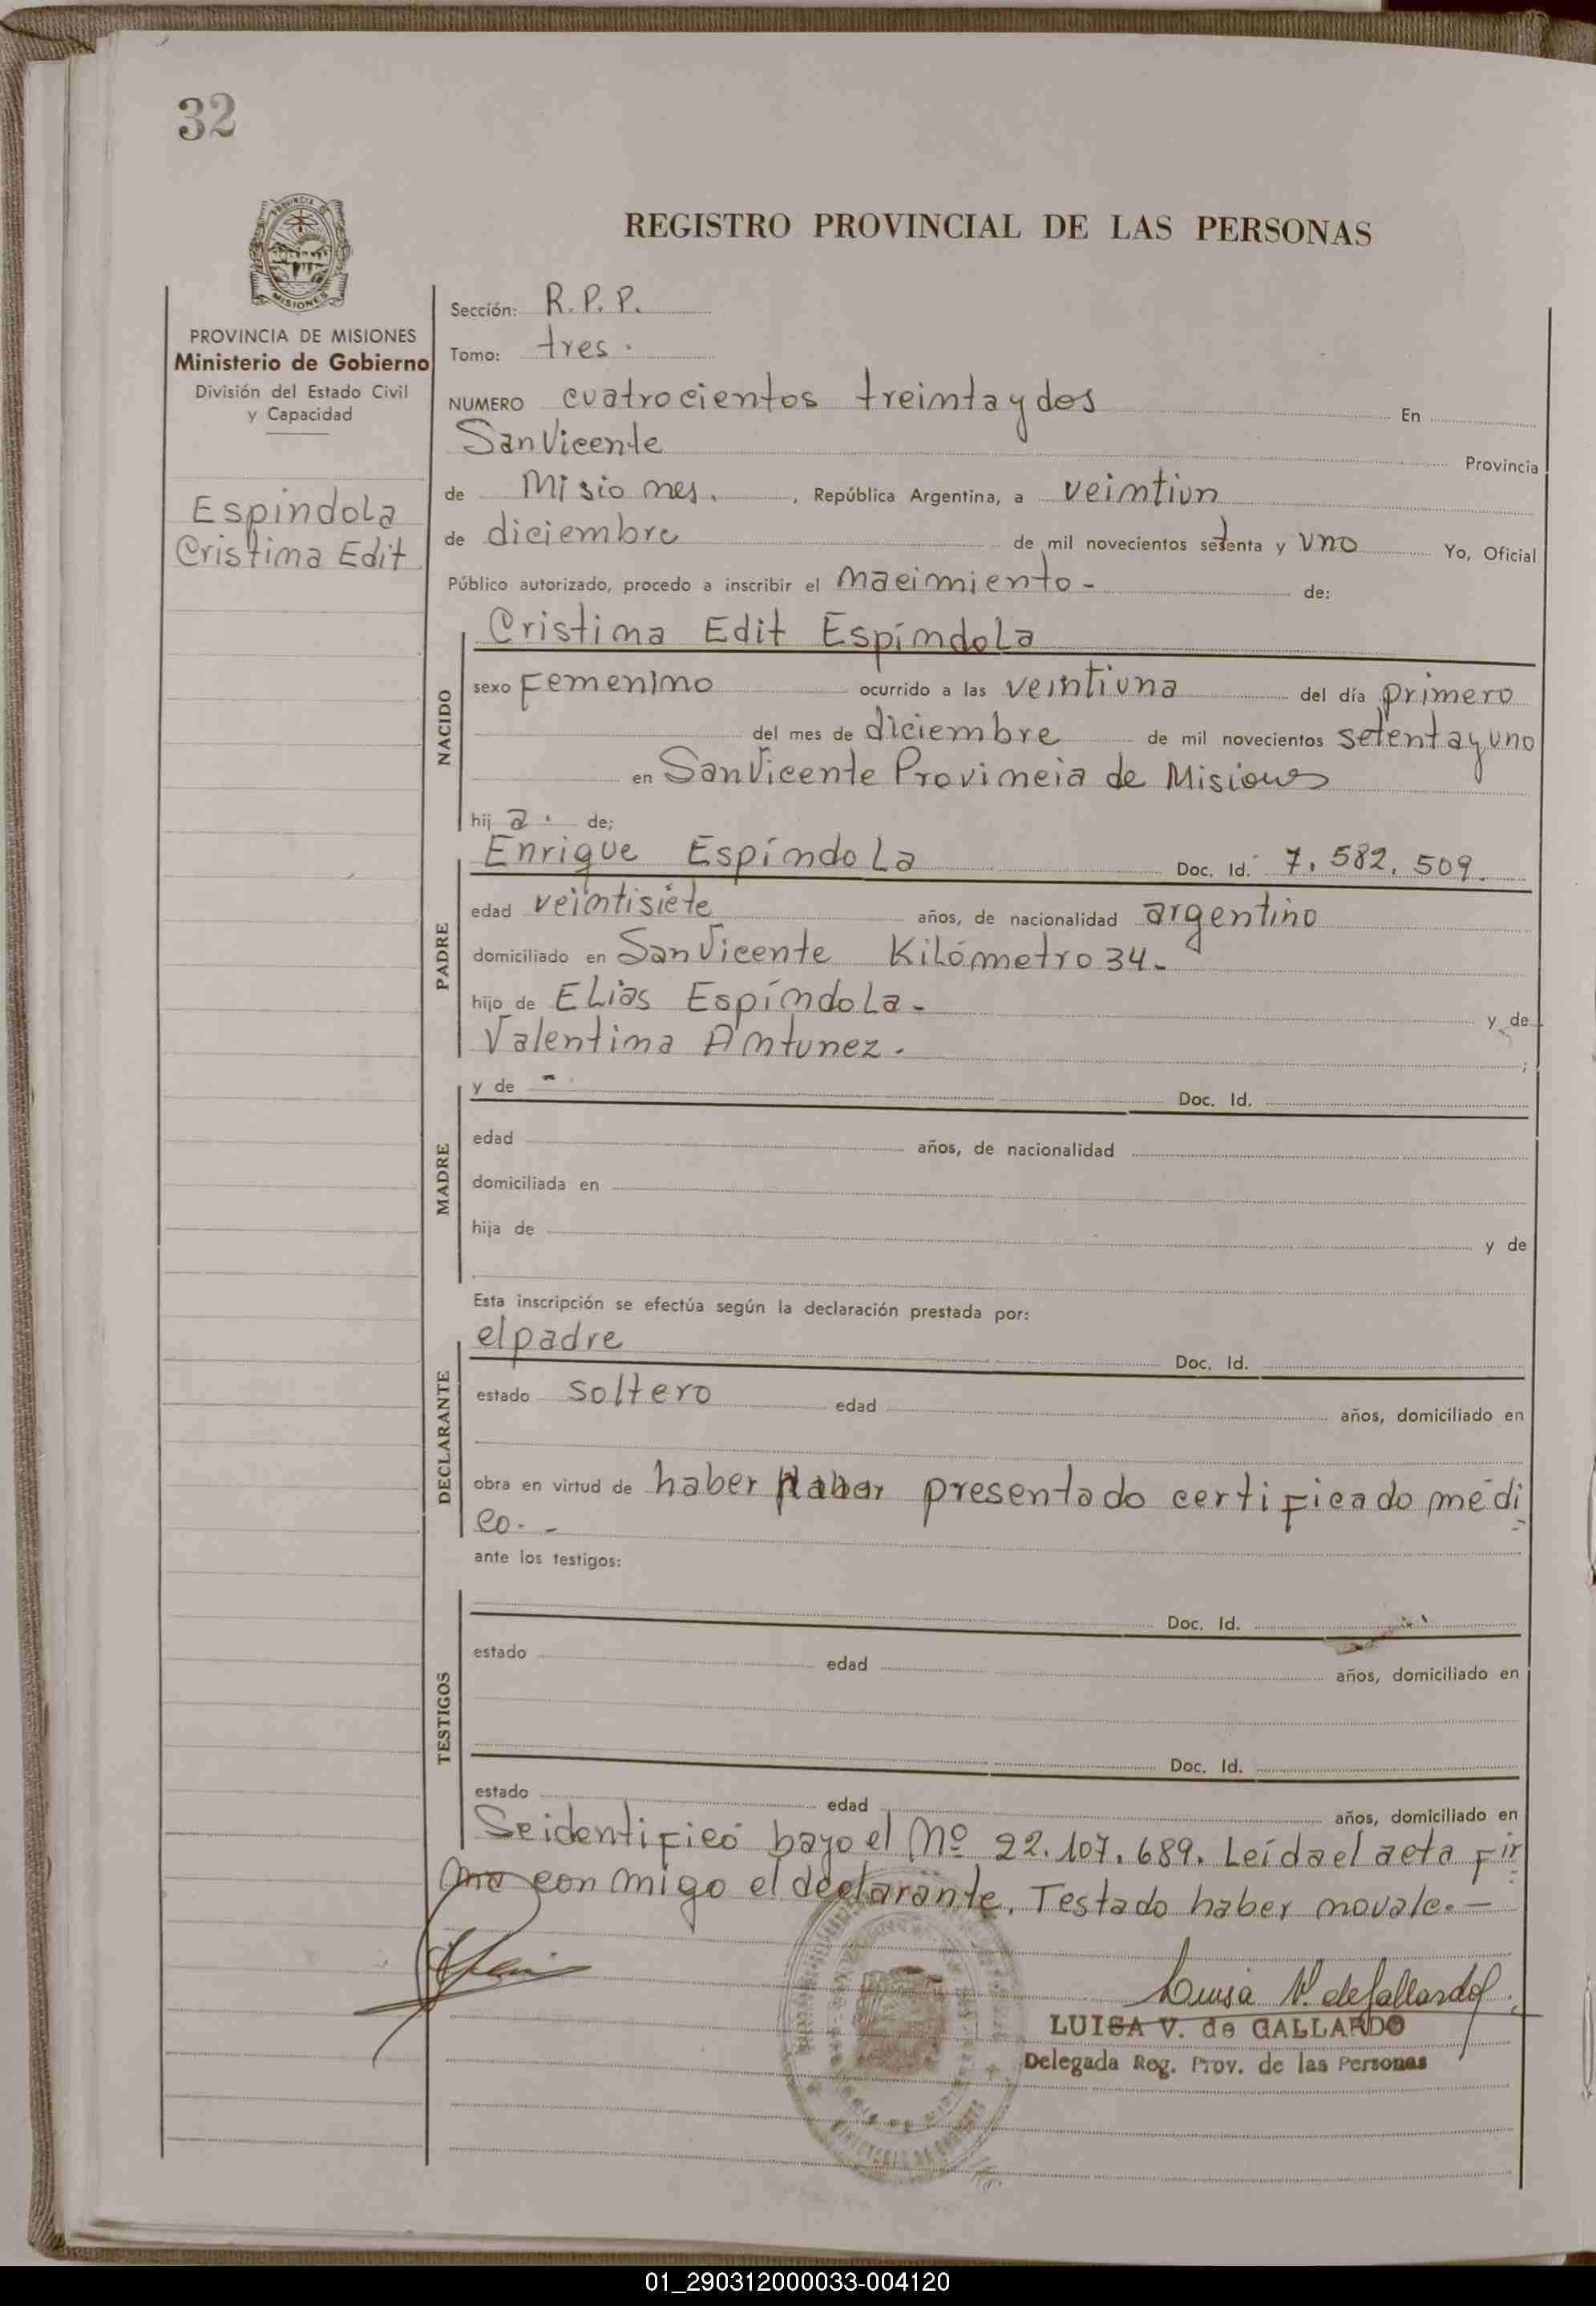 32
PROVINCIA DE
MISIONES
PROVINCIA DE MISIONES
Ministerio de Gobierno
División del Estado Civil
y Capacidad
Espíndola
Cristina Edit
REGISTRO PROVINCIAL DE LAS PERSONAS
Sección: R.P.P.
Tomo: tres.
NUMERO cuatrocientos treinta y dos En
San Vicente Provincia
de Misiones. , República Argentina, a veintiun
de diciembre de mil novecientos setenta y uno Yo, Oficial
Público autorizado, procedo a inscribir el nacimiento - de:
Cristina Edit Espíndola
NACIDO
sexo Femenino ocurrido a las veintiuna del día primero
del mes de diciembre de mil novecientos setenta y uno
en San Vicente Provincia de Misiones
hij a. de;
Enrique Espíndola Doc. Id. 7.582.509.
PADRE
edad veintisiete años, de nacionalidad argentino
domiciliado en San Vicente Kilómetro 34-
hijo de Elias Espíndola- y de
Valentina Antunez. ;
MADRE
y de - Doc. Id.
edad años, de nacionalidad
domiciliada en
hija de y de
Esta inscripción se efectúa según la declaración prestada por:
el padre Doc. Id.
DECLARANTE
estado soltero edad años, domiciliado en
obra en virtud de haber haber presentado certificado médi
co.-
ante los testigos:
TESTIGOS
Doc. Id.
estado edad años, domiciliado en
Doc. Id.
estado edad años, domiciliado en
Se identificó bayo el Nº 22.107.689. Leída el acta fir
ma con migo el declarante. Testado haber no vale.-
Luisa V. de Gallardo
LUISA V. de GALLARDO
Delegada Reg. Prov. de las Personas
01_290312000033-004120